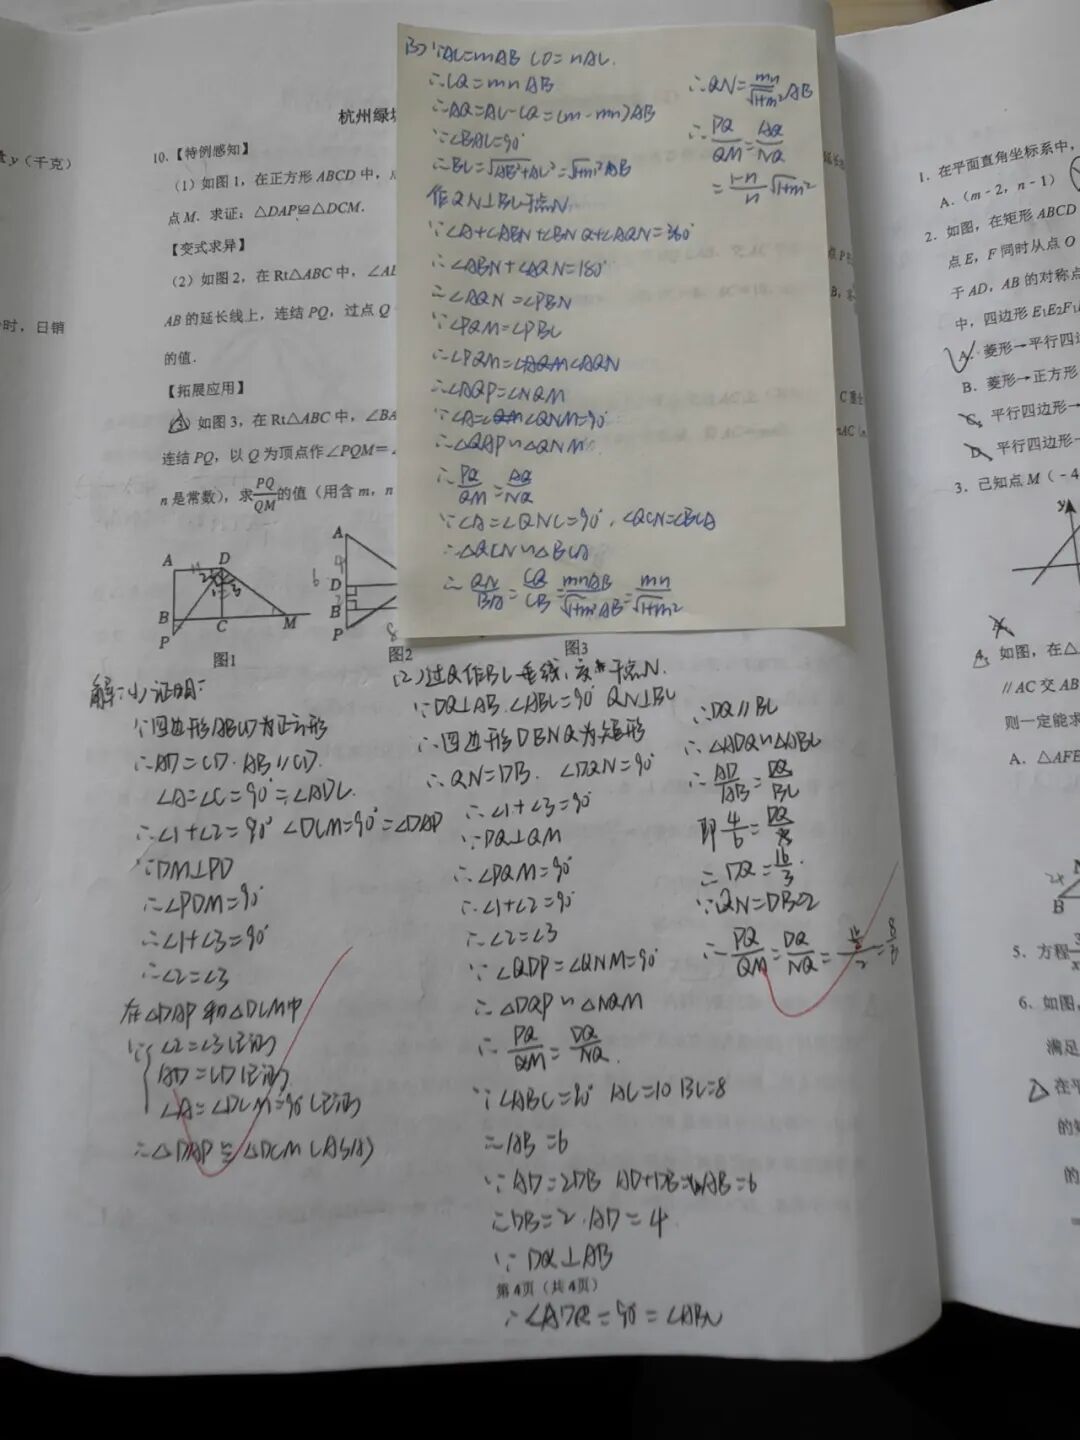 量y（千克）
时，日销
杭州绿城
10.【特例感知】
（1）如图1，在正方形ABCD中，
点M．求证：△DAP≌△DCM．
【变式求异】
（2）如图2，在Rt△ABC中，∠AB
AB的延长线上，连结PQ，过点Q
的值．
【拓展应用】
（3）如图3，在Rt△ABC中，∠BA
连结PQ，以Q为顶点作∠PQM=
n是常数），求PQ/QM的值（用含m，n
A D B C M P
图1
A D B P
6
8
图2
图3
(3) ∵AC=mAB CQ=nAC.
∴CQ=mnAB
∴AQ=AC-CQ=(m-mn)AB
∵∠BAC=90°
∴BC=√AB²+AC²=√1+m²AB
作QN⊥BC于点N
∵∠A+∠ABN+∠BNQ+∠AQN=360°
∴∠ABN+∠AQN=180°
∴∠AQN=∠PBN
∵∠PQM=∠PBC
∴∠PQM=∠AQN
∴∠AQP=∠NQM
∵∠A=∠QNM=90°
∴△QAP∽△QNM
∴PQ/QM=AQ/NQ
∵∠A=∠QNC=90°,∠QCN=∠BCA
∴△QCN∽△BCA
∴QN/BA=CQ/CB=mnAB/√1+m²AB=mn/√1+m²
∴QN=mn/√1+m² AB
∴PQ/QM=AQ/NQ
=1-n/n √1+m²
解:(1)证明:
∵四边形ABCD为正方形
∴AD=CD.AB∥CD.
∠A=∠C=90°=∠ADC.
∴∠1+∠2=90° ∠DCM=90°=∠DAP
∵DM⊥PD
∴∠PDM=90°
∴∠1+∠3=90°
∴∠2=∠3
在△DAP和△DCM中
∵∠2=∠3(已证)
AD=CD(已证)
∠A=∠DCM=90°(已证)
∴△DAP≌△DCM(ASA)
(2)过Q作BC垂线,交于点N.
∵DQ⊥AB.∠ABC=90° QN⊥BC
∴四边形DBNQ为矩形
∴QN=DB. ∠DQN=90°
∴∠1+∠3=90°
∵PQ⊥QM
∴∠PQM=90°
∴∠1+∠2=90°
∴∠2=∠3
∵∠QDP=∠QNM=90°
∴△DQP∽△NQM
∴PQ/QM=DQ/NQ.
∵∠ABC=90° AC=10 BC=8
∴AB=6
∵AD=2DB AD+DB=AB=6
∴DB=2.AD=4
∵DQ⊥AB
第4页（共4页）
∴∠ADQ=90°=∠ABN
∴DQ∥BC
∴△ADQ∽△ABC
∴AD/AB=DQ/BC
即4/6=DQ/8
∴DQ=16/3
∵QN=DB=2
∴PQ/QM=DQ/NQ=16/3/2=8/3
1．在平面直角坐标系中，
A．(m-2，n-1)
2．如图，在矩形ABCD
点E，F同时从点O
于AD，AB的对称点
中，四边形E₁E₂F₁
A．菱形→平行四边
B．菱形→正方形
C．平行四边形→
D．平行四边形→
3．已知点M（-4
4．如图，在△
∥AC交AB
则一定能求
A．△AFE
B
5．方程
6．如图，
满足
在平
的
的